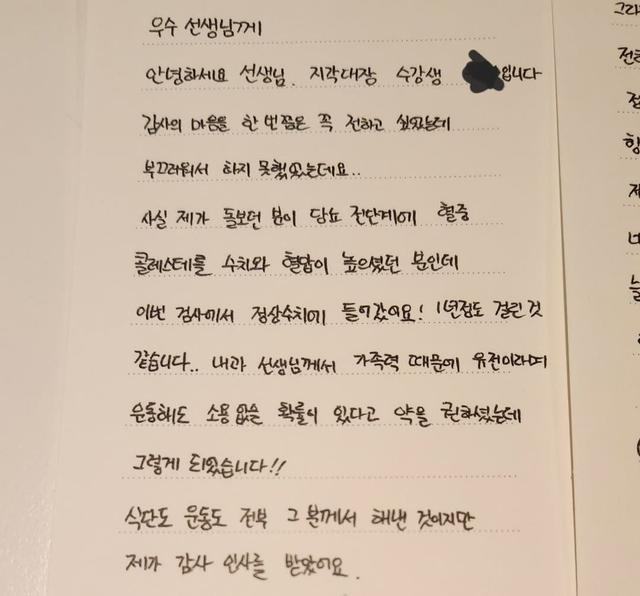 우수 선생님께
안녕하세요 선생님. 지각대장 수강생 입니다
감사의 마음을 한 번쯤은 꼭 전하고 싶었는데
부끄러워서 하지 못했었는데요..
사실 제가 돌보던 분이 당뇨 전단계에 혈중
콜레스테롤 수치와 혈압이 높으셨던 분인데
이번 검사에서 정상수치에 들어갔어요! 1년정도 걸린 것
같습니다.. 내과 선생님께서 가족력 때문에 유전이라며
운동해도 소용없을 확률이 있다고 약을 권하셨는데
그렇게 되었습니다!!
식단도 운동도 전부 그 분께서 해낸 것이지만
제가 감사 인사를 받았어요.